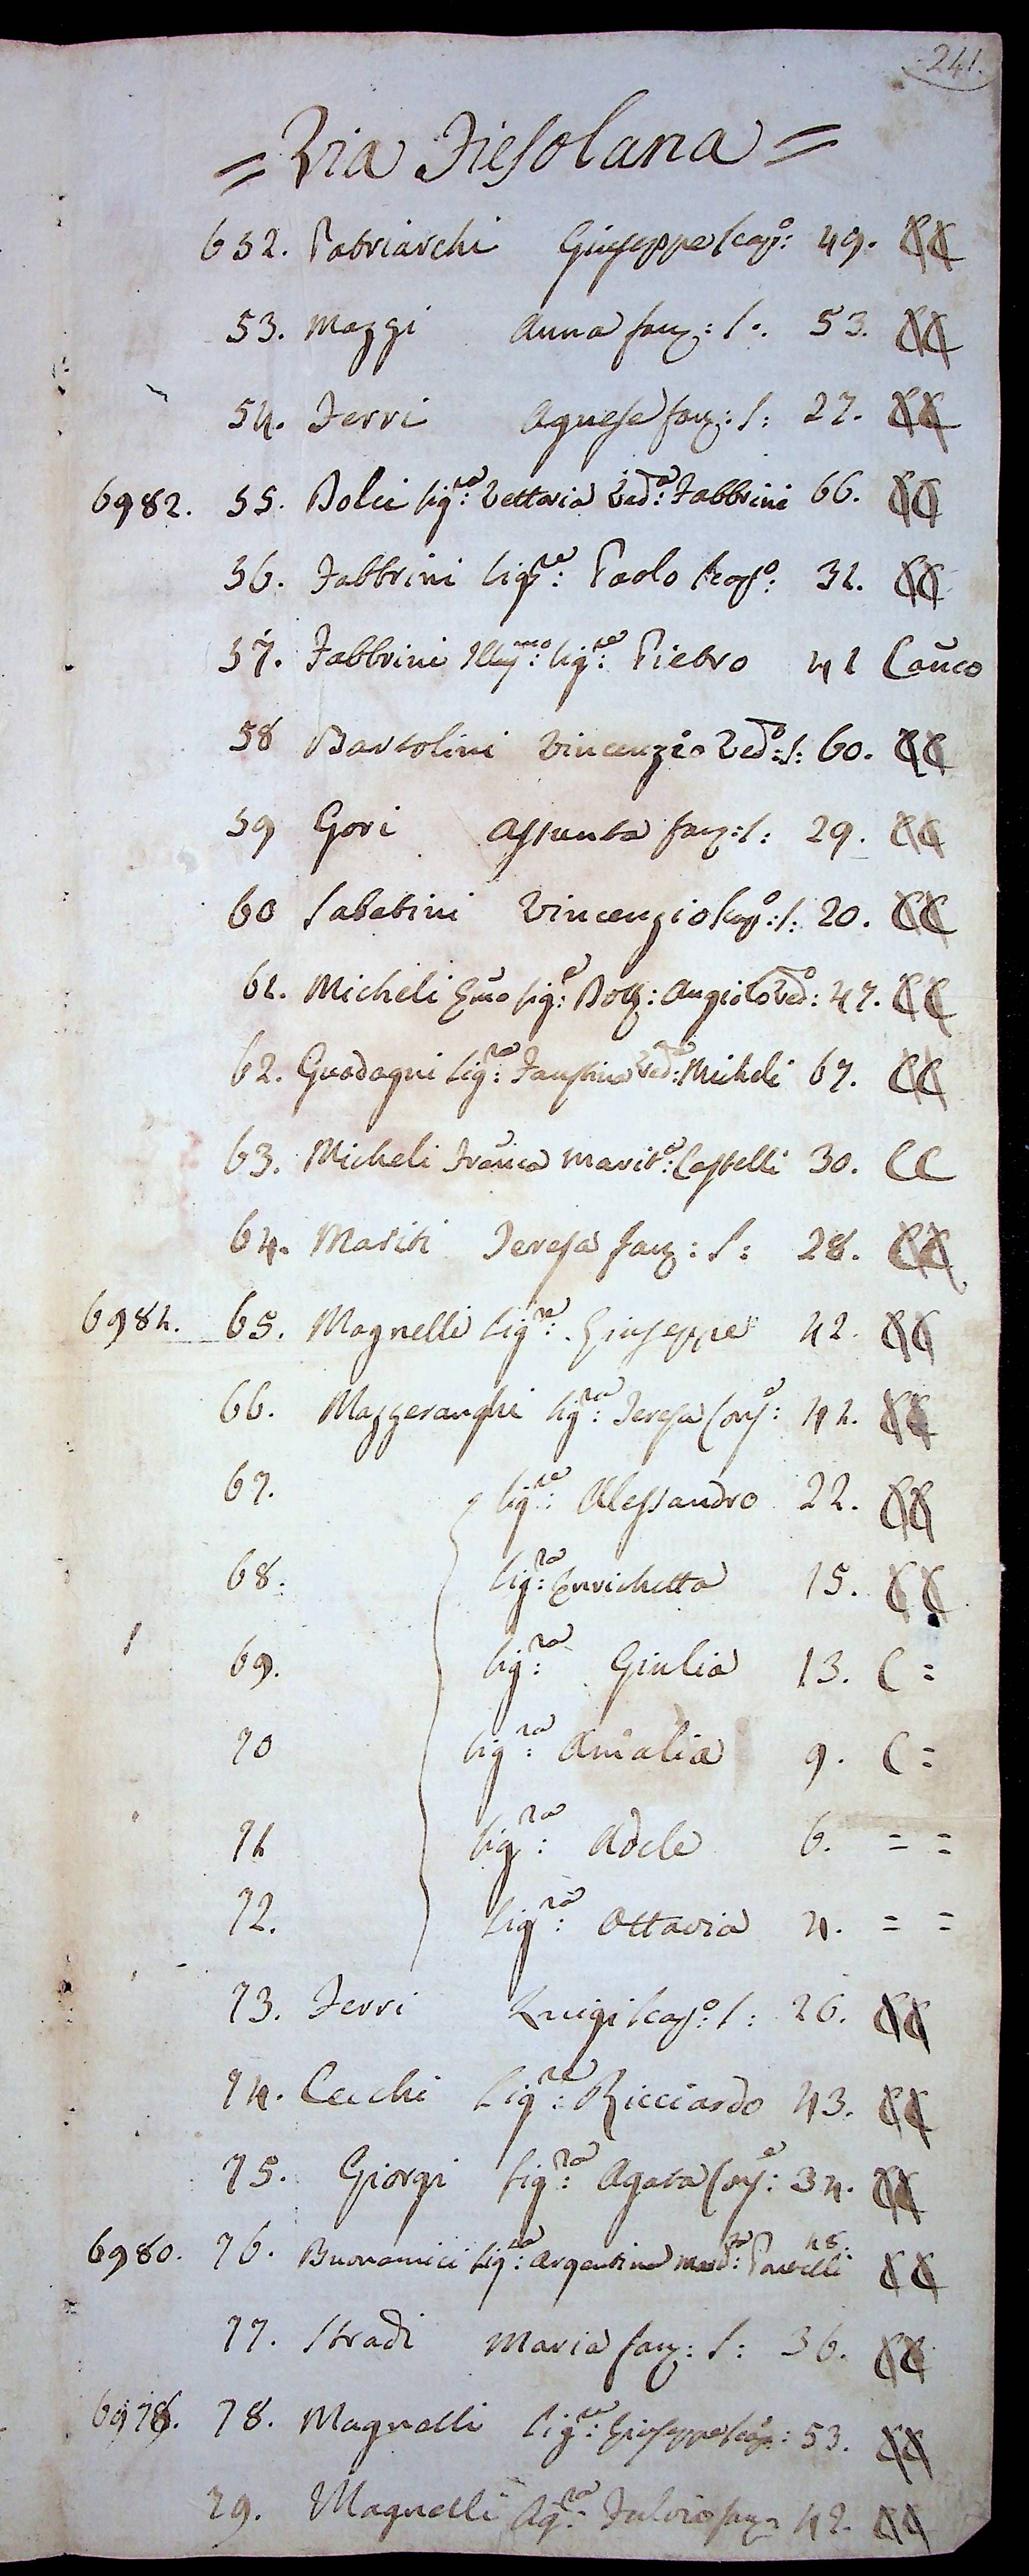 241.
= Via Fiesolana =
652. Patriarchi Giuseppe scap:º 49. CC
53. Mazzi Anna fanz: s: 53. CC
54. Ferri Agnese fanz: s: 27. CC
6982. 55. Dolci Sig:ra Vettoria Ved:a Fabbrini 66. CC
56. Fabbrini Sig:re Paolo scap:º 32. CC
57. Fabbrini Ill:mo Sig:re Pietro 41 Cauco
58 Bartolini Vincenzio Ved:º s: 60. CC
59 Gori Assunta fanz: s: 29. CC
60 Sabatini Vincenzio scap:º s: 20. CC
61. Micheli Sig:e Dott: Angiolo Ved:º 47. CC
62. Guadagni Sig:ra Faustina Ved:a Micheli 67. CC
63. Micheli Franca Marit:a Castelli 30. CC
64. Mariti Teresa fanz: s: 28. CC
6981. 65. Magnelli Sig:re Giuseppe 42. CC
66. Mazzeranghi Sig:ra Teresa Conj:e 42. CC
67. Sig:re Alessandro 22. CC
68. Sig:ra Enrichetta 15. CC
69. Sig:ra Giulia 13. C =
70 Sig:ra Amalia 9. C =
71 Sig:ra Adele 6. = =
72. Sig:ra Ottavia 4. = =
73. Ferri Luigi scap:º s: 26. CC
74. Cecchi Sig:re Ricciardo 43. CC
75. Giorgi Sig:ra Agata Conj:e 34. CC
6980. 76. Buonamici Sig:ra Argentina 48. CC
77. Stradi Maria fanz: s: 36. CC
6978. 78. Magnelli Sig:re Giuseppe scap: 53. CC
79. Magnelli Sig:ra Fulvia fanz: 42. CC